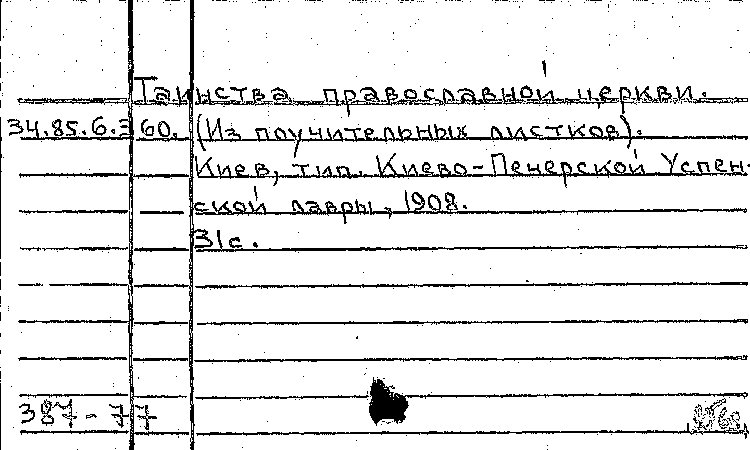 Таинства православной церкви.
34.85.6.360. (Из поучительных листков).
Киев, тип. Киево-Печерской Успен-
ской лавры, 1908.
31с.
387-77